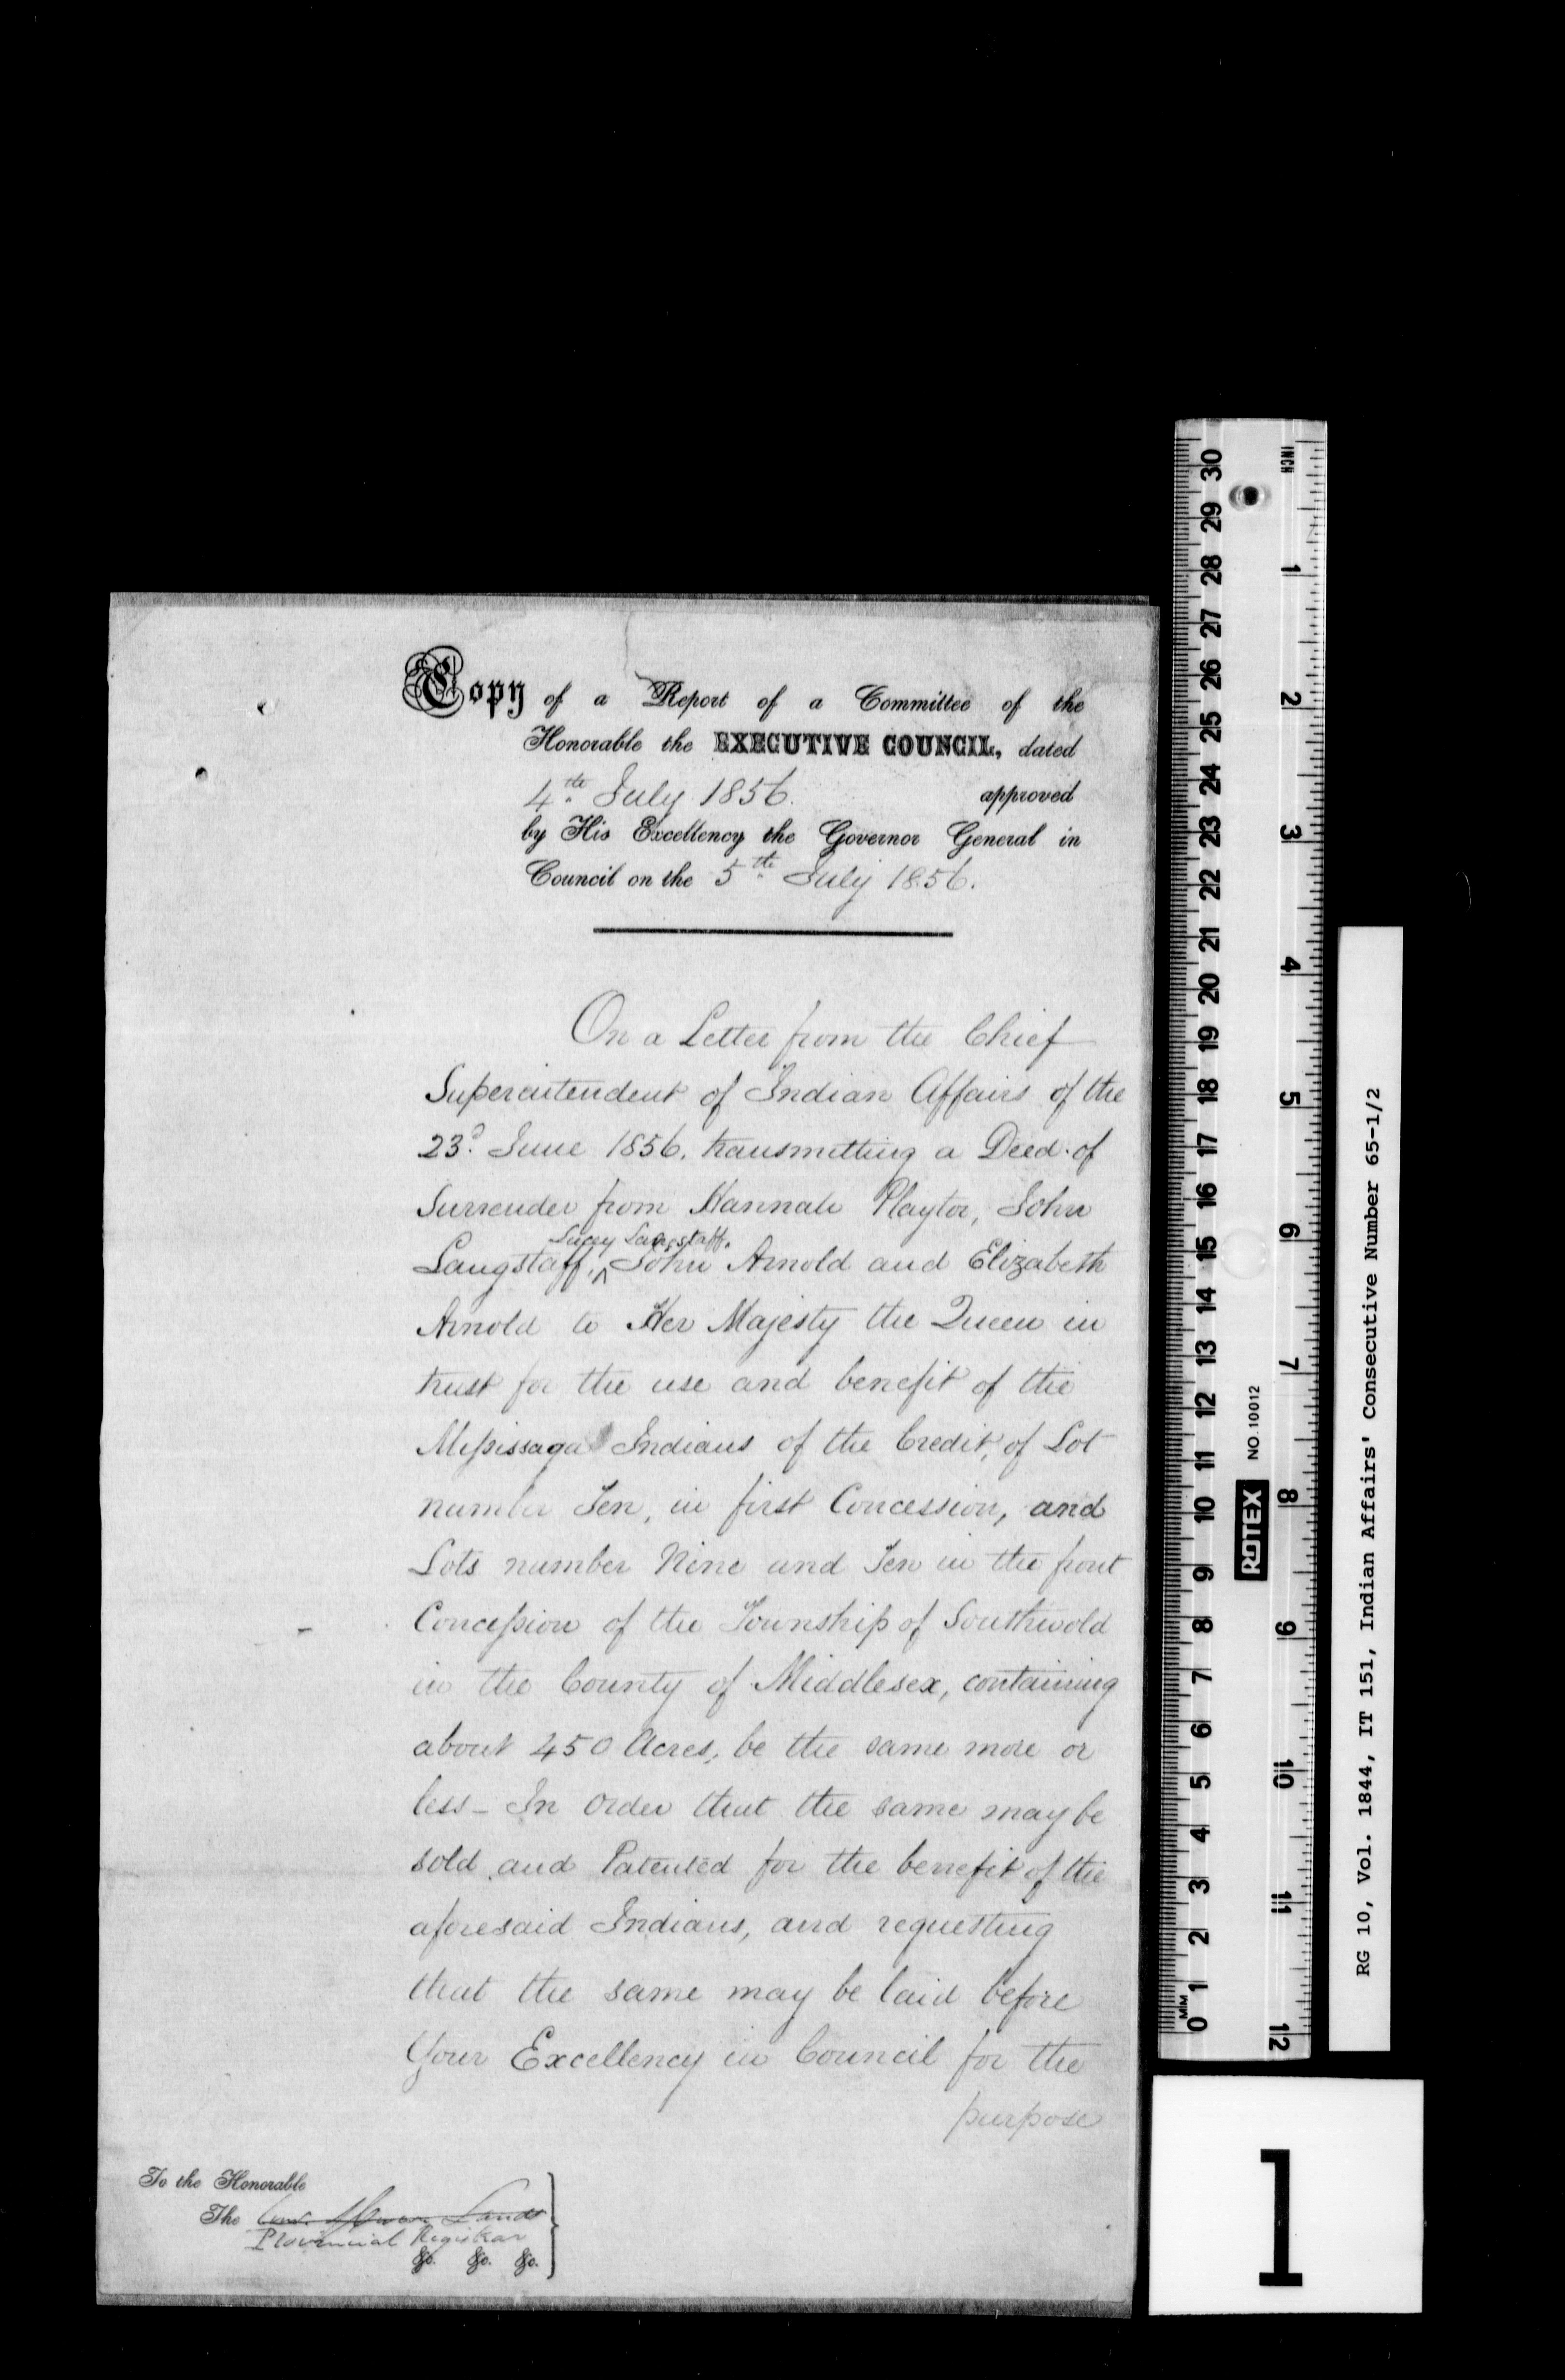 Copy of a Report of a Committee of the
Honorable the EXECUTIVE COUNCIL, dated
4th July 1856. approved
by His Excellency the Governor General in
Council on the 5th July 1856.
On a Letter from the Chief
Superintendent of Indian Affairs of the
23d June 1856, transmitting a Deed of
Surrender from Hannah Playtor, John
Lucy Langstaff,
Langstaff, ^ John Arnold and Elizabeth
Arnold to Her Majesty the Queen in
trust for the use and benefit of the
Missisaga Indians of the Credit, of Lot
number Ten, in first Concession, and
Lots number Nine and Ten in the front
Concession of the Township of Southwold
in the County of Middlesex, containing
about 450 Acres, be the same more or
less - In order that the same may be
sold and Patented for the benefit of the
aforesaid Indians, and requesting
that the same may be laid before
Your Excellency in Council for the
purpose
To the Honorable
The Com. Crown Lands
Provincial Registrar
&c. &c. &c.
INCH
1 2 3 4 5 6 7 8 9 10 11 12
30 29 28 27 26 25 24 23 22 21 20 19 18 17 16 15 14 13 12 11 10 9 8 7 6 5 4 3 2 1 0
MM
ROTEX NO. 10012
RG 10, Vol. 1844, IT 151, Indian Affairs' Consecutive Number 65-1/2
1